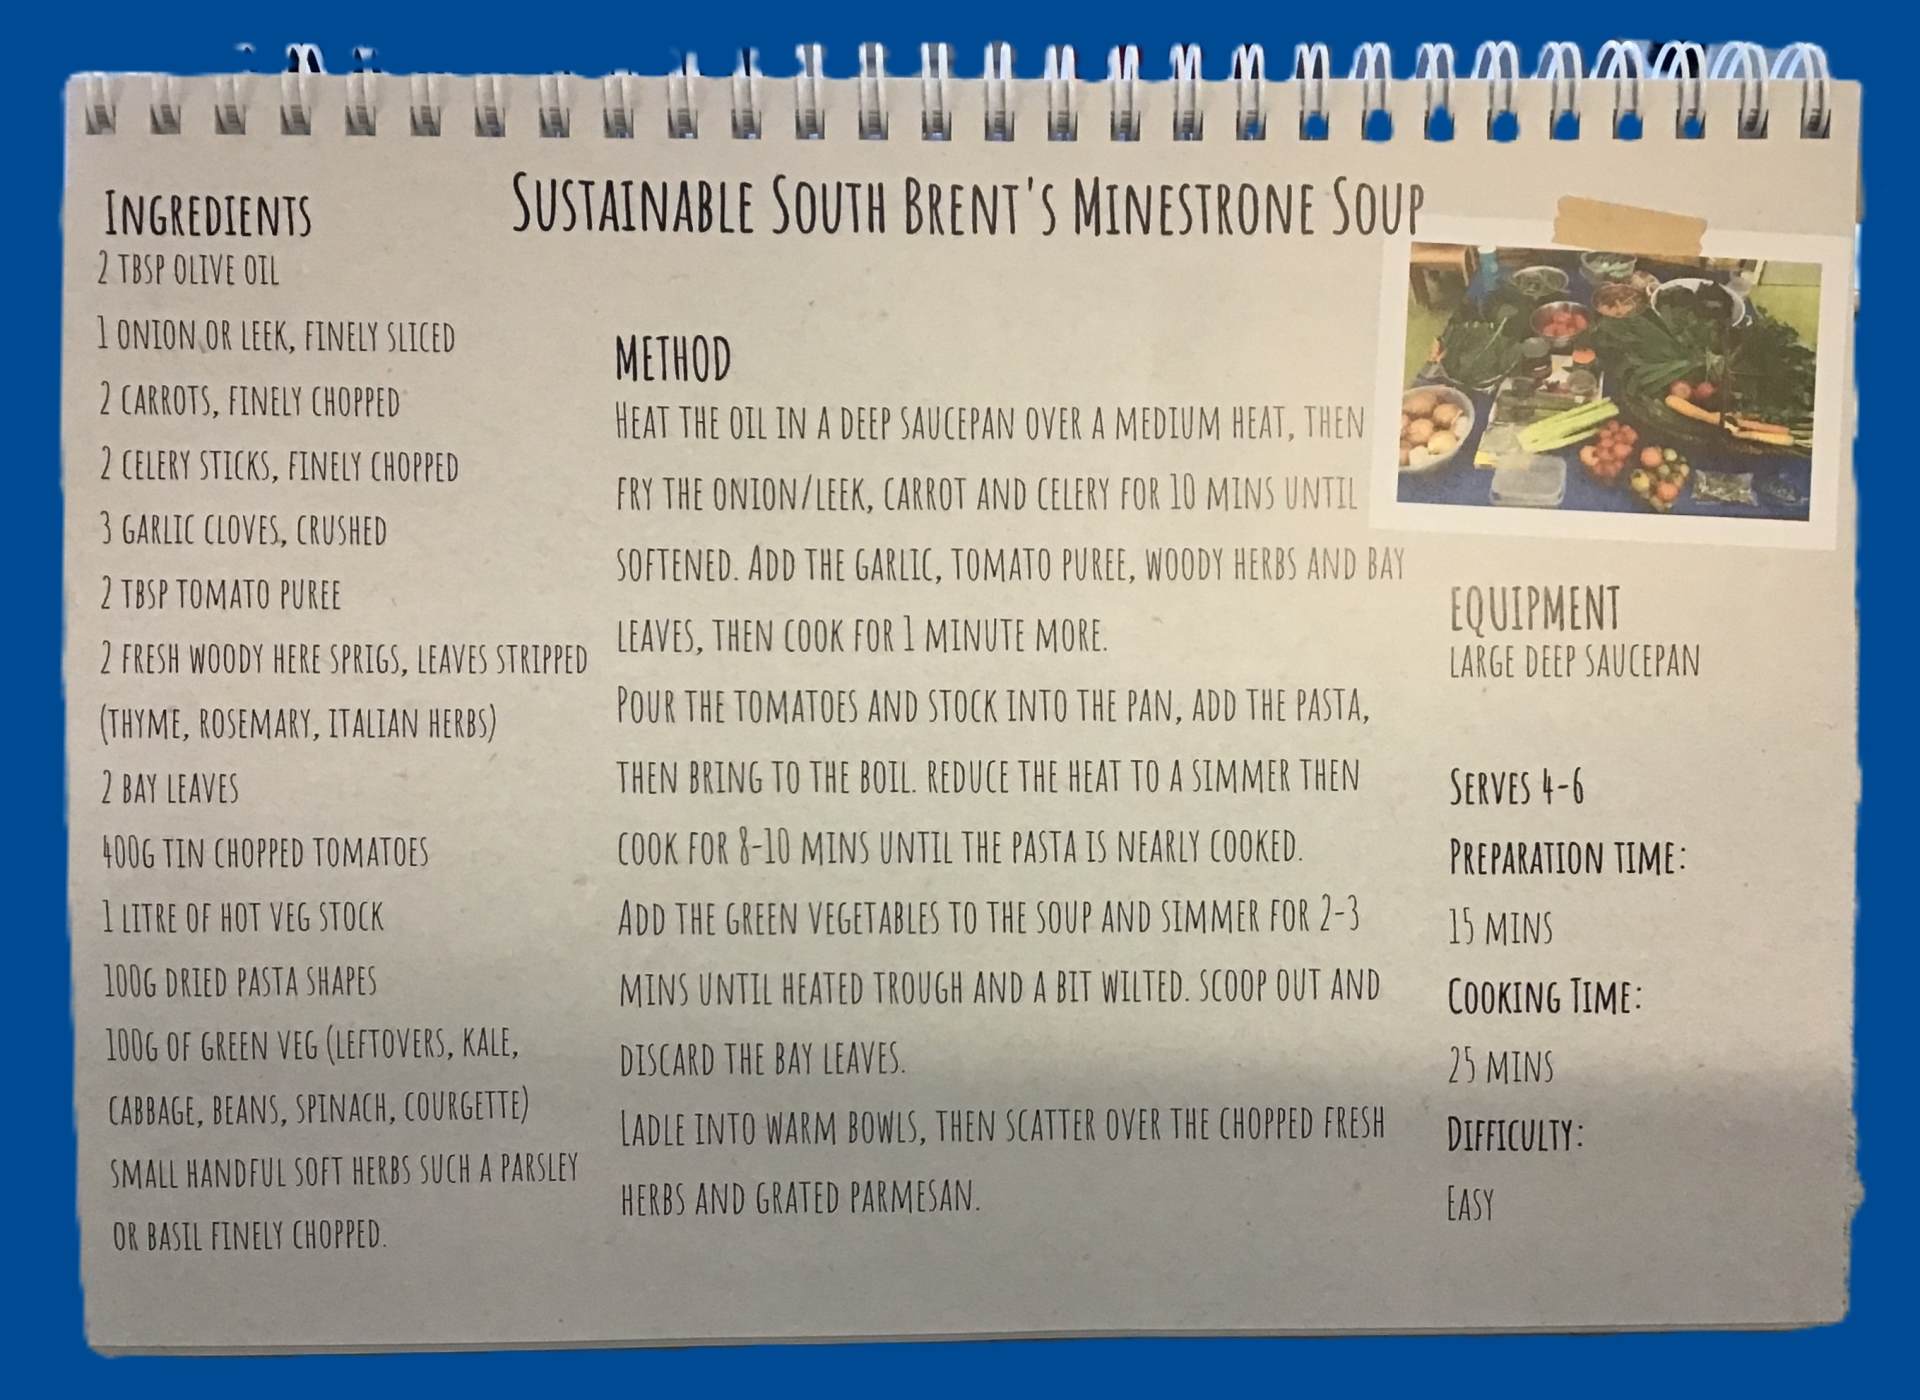 Sustainable South Brent's Minestrone Soup
Ingredients
2 tbsp olive oil
1 onion or leek, finely sliced
2 carrots, finely chopped
2 celery sticks, finely chopped
3 garlic cloves, crushed
2 tbsp tomato puree
2 fresh woody here sprigs, leaves stripped
(thyme, rosemary, italian herbs)
2 bay leaves
400g tin chopped tomatoes
1 litre of hot veg stock
100g dried pasta shapes
100g of green veg (leftovers, kale,
cabbage, beans, spinach, courgette)
small handful soft herbs such a parsley
or basil finely chopped.
METHOD
Heat the oil in a deep saucepan over a medium heat, then
fry the onion/leek, carrot and celery for 10 mins until
softened. Add the garlic, tomato puree, woody herbs and bay
leaves, then cook for 1 minute more.
Pour the tomatoes and stock into the pan, add the pasta,
then bring to the boil. reduce the heat to a simmer then
cook for 8-10 mins until the pasta is nearly cooked.
Add the green vegetables to the soup and simmer for 2-3
mins until heated trough and a bit wilted. scoop out and
discard the bay leaves.
Ladle into warm bowls, then scatter over the chopped fresh
herbs and grated parmesan.
EQUIPMENT
large deep saucepan
Serves 4-6
Preparation time:
15 mins
Cooking Time:
25 mins
Difficulty:
Easy